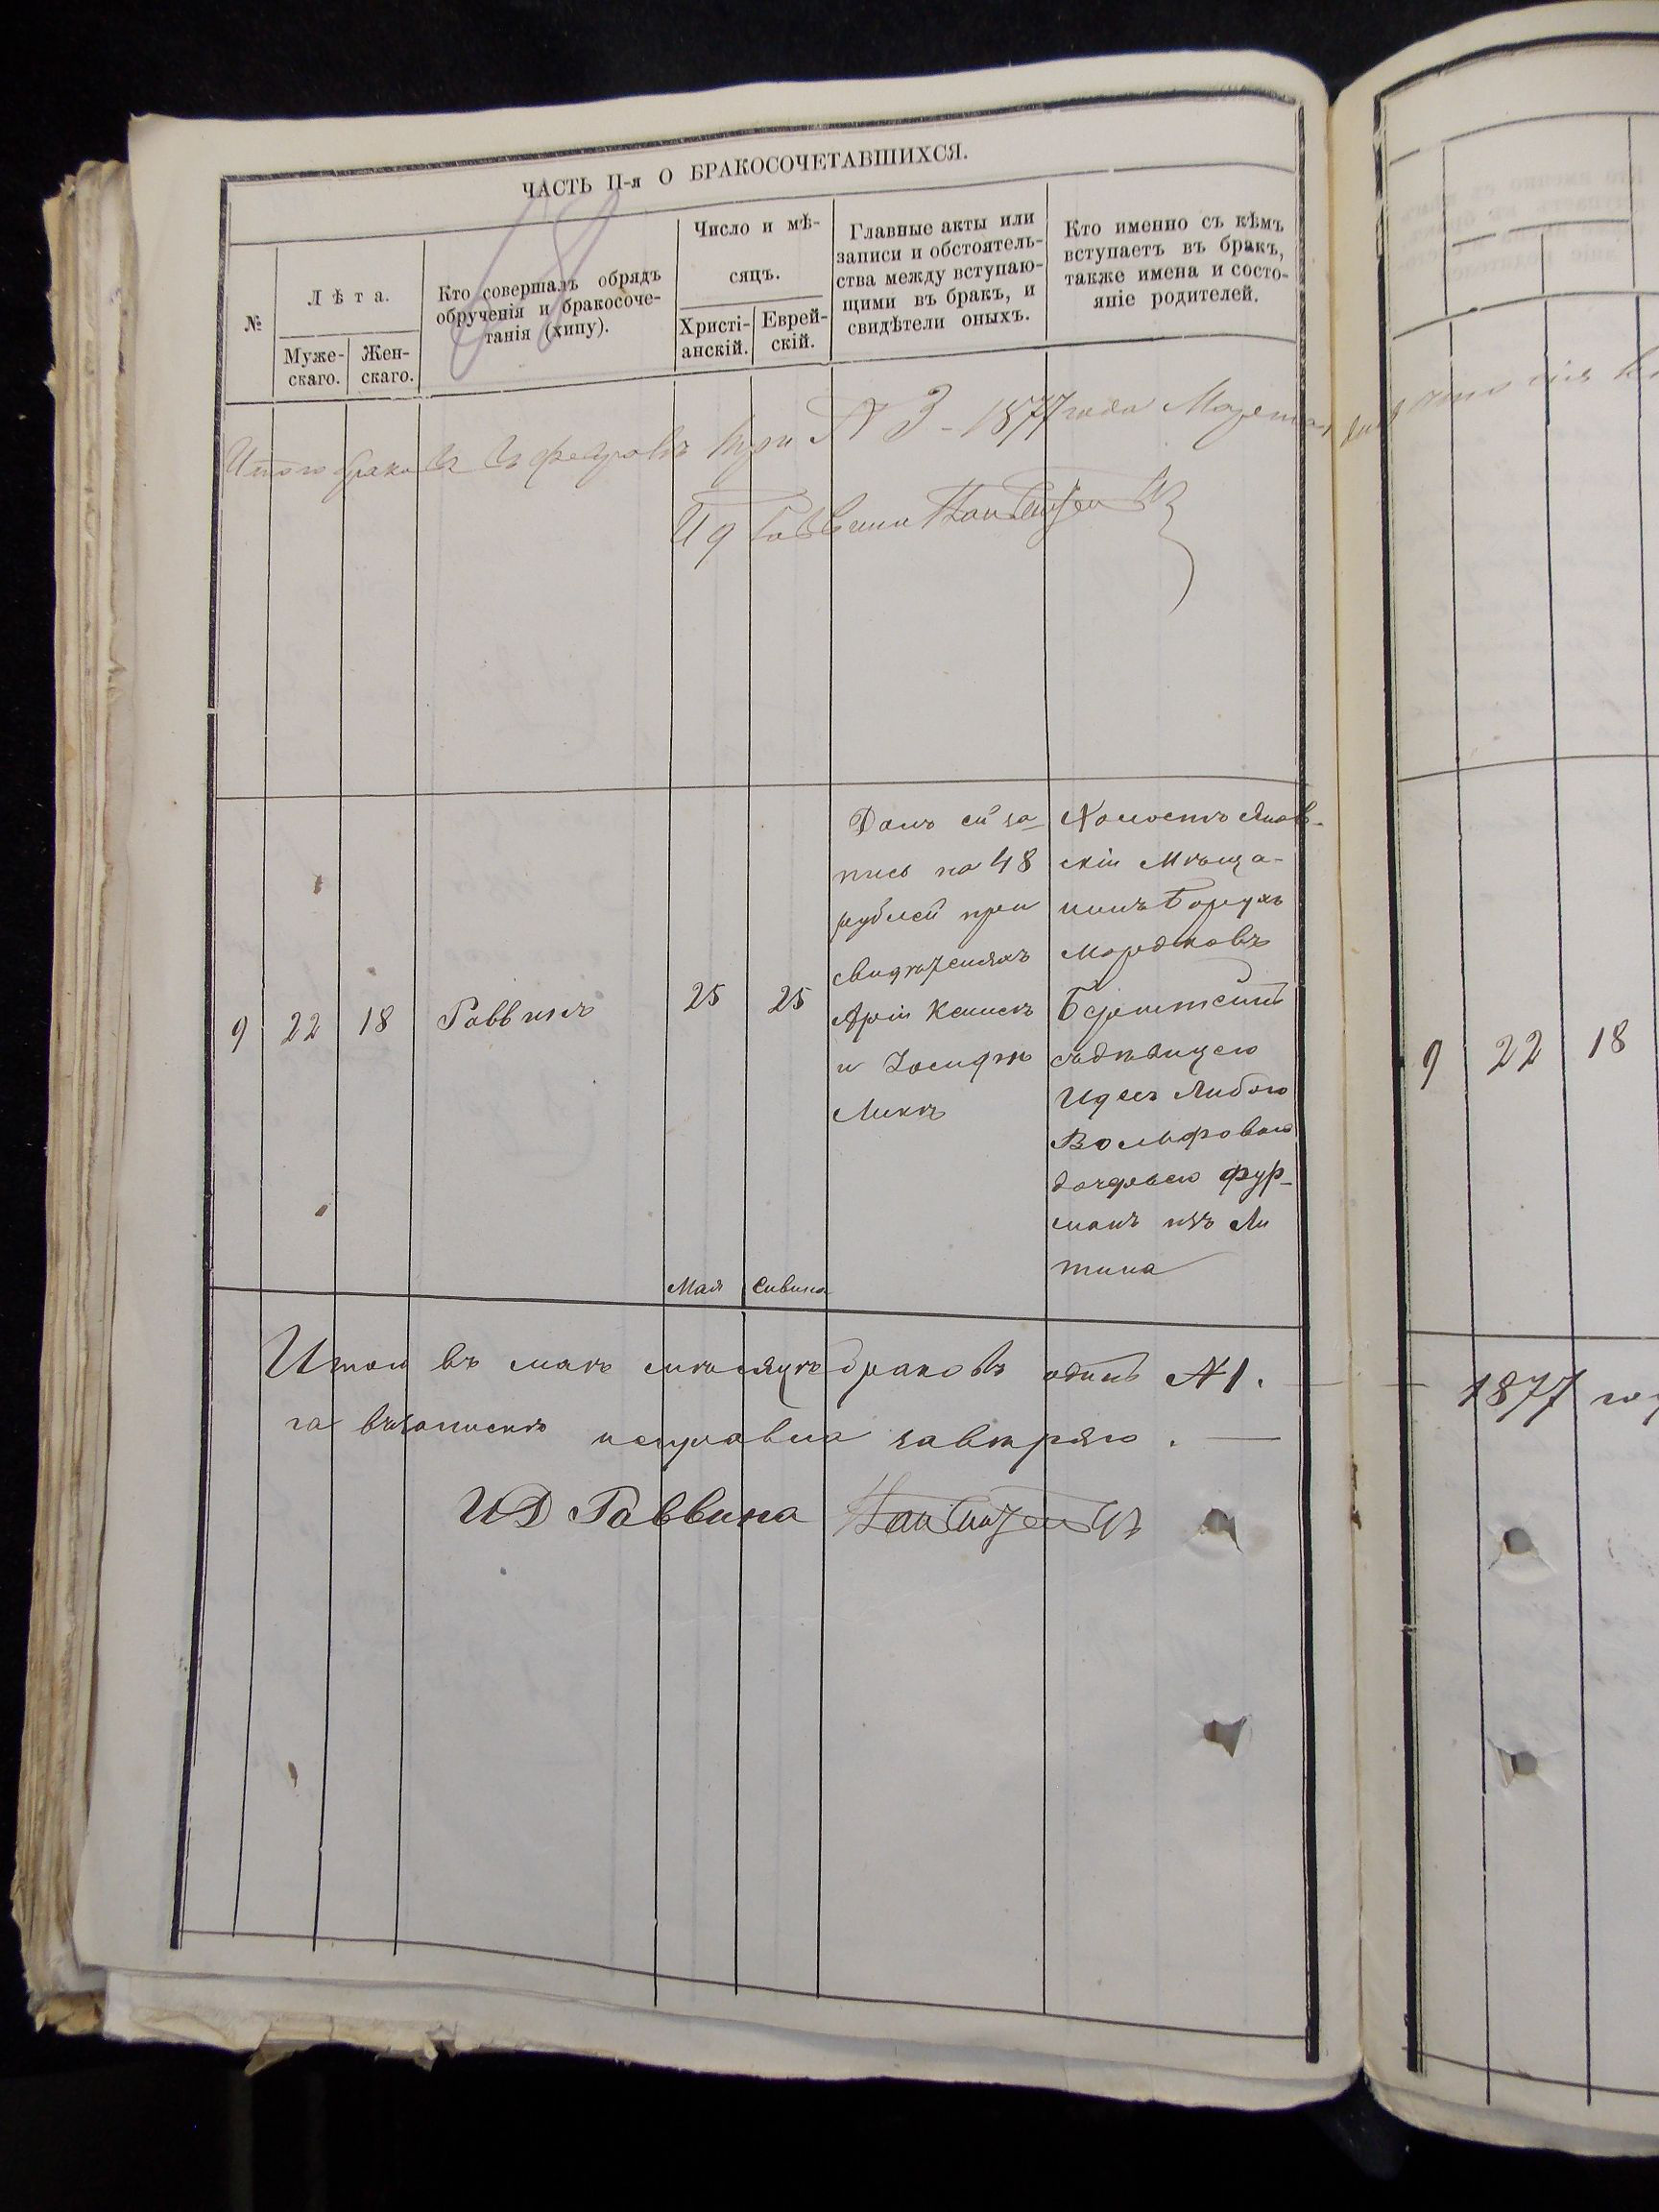 ЧАСТЬ II-я О БРАКОСОЧЕТАВШИХСЯ.
№
Лѣта.
Муже-
скаго.
Жен-
скаго.
Кто совершалъ обрядъ
обрученія и бракосоче-
танія (хипу).
Число и мѣ-
сяцъ.
Христі-
анскій.
Еврей-
скій.
Главные акты или
записи и обстоятель-
ства между вступаю-
щими въ бракъ, и
свидѣтели оныхъ.
Кто именно съ кѣмъ
вступаетъ въ бракъ,
также имена и состо-
яніе родителей.
Итого браковъ три N 3 - 1877 года
И д Раввина
9
22
18
Раввинъ
25
Мая
25
Сивина
Данъ сій за-
пись на 48
рублей при
свидѣтеляхъ
Арій
и Іосифъ
Холостъ Янов-
скій Мѣща-
нинъ Борухъ
Мордковъ
съ дѣвицею
Идесъ Либою
Вольфовою
дочерью Фур-
манъ изъ Ли
тина
Итого въ маѣ мѣсяцѣ браковъ одинъ N 1.
исправна завѣряю.
ИД Раввина
9
22
18
1877